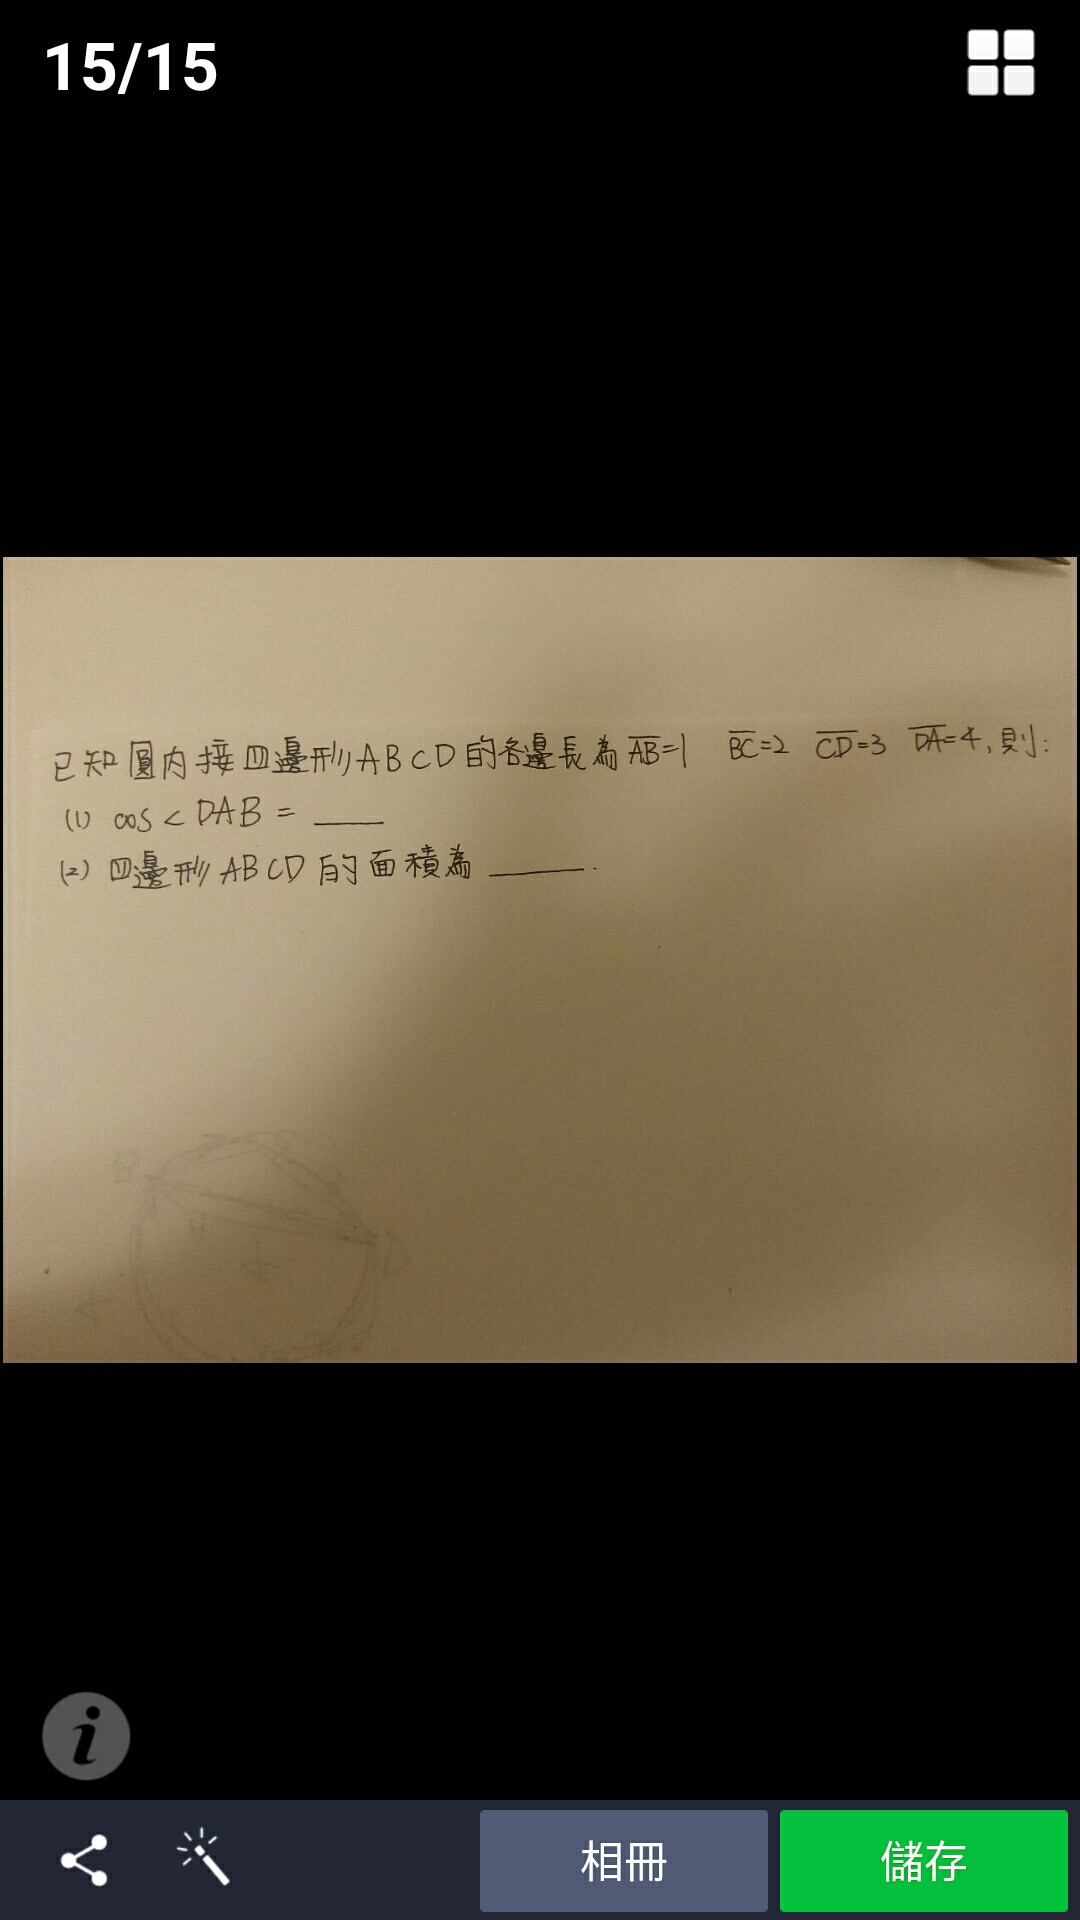 15/15
已知圓內接四邊形ABCD的各邊長為AB=1 BC=2 CD=3 DA=4,則:
(1) cos<DAB = ____
(2) 四邊形ABCD的面積為 ______.
B
D
相冊
儲存